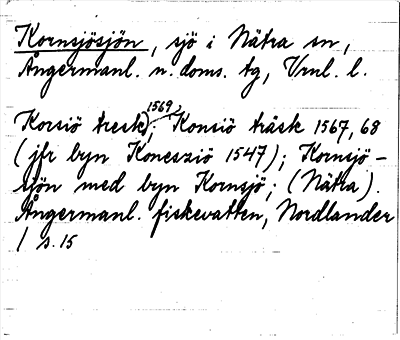 Kornsjösjön, sjö i Nätra sn,
Ångermanl. n. doms. tg, Vrnl. l.
Korsiö tresk, 1569; Konsiö träsk 1567, 68
(jfr byn Koneszziö 1547); Kornsjö-
sjön med byn Kornsjö; (Nätra).
Ångermanl. fiskevatten, Nordlander
1 s. 15